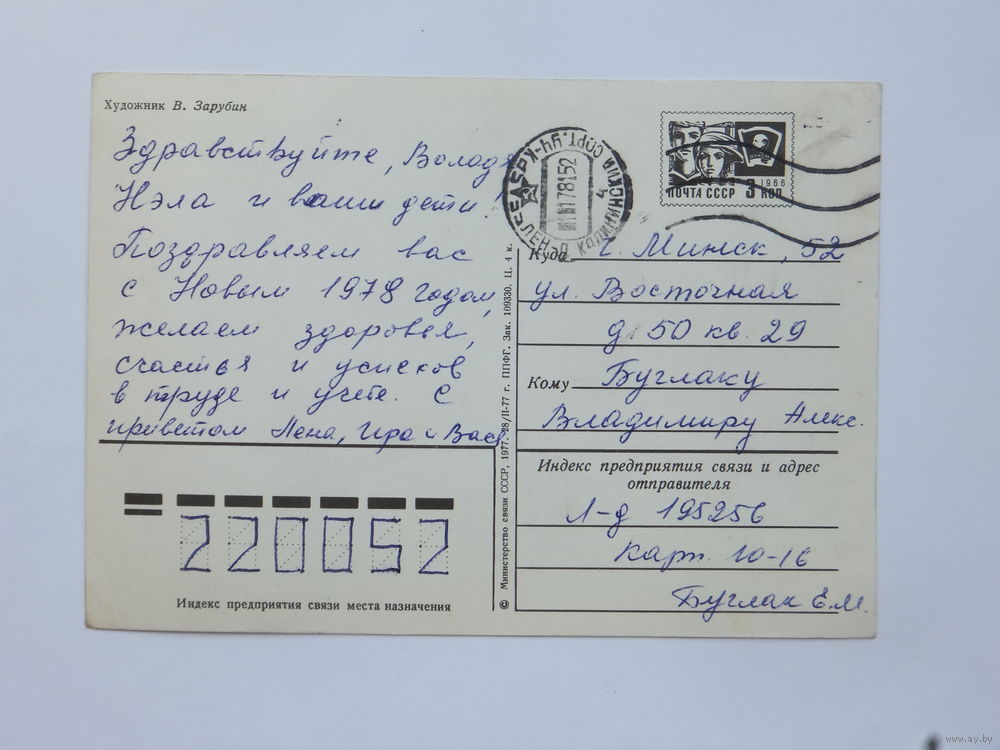 Художник В. Зарубин
Здравствуйте, Володя
Нэла и ваши дети!
Поздравляем вас
с Новым 1978 годом,
желаем здоровья,
счастья и успехов
в труде и учебе. С
приветом Лена, Ира и Вася
220052
Индекс предприятия связи места назначения
© Министерство связи СССР, 1977. 28/II-77 г. ППФГ. Зак. 109330. Ц. 4 к.
ПОЧТА СССР 3 КОП
1966
Куда г. Минск, 52
ул. Восточная
д 50 кв. 29
Кому Буглаку
Владимиру Алекс.
Индекс предприятия связи и адрес
отправителя
Л-д 195256
Карп. 10-16
Буглак Е.М.
www.ay.by